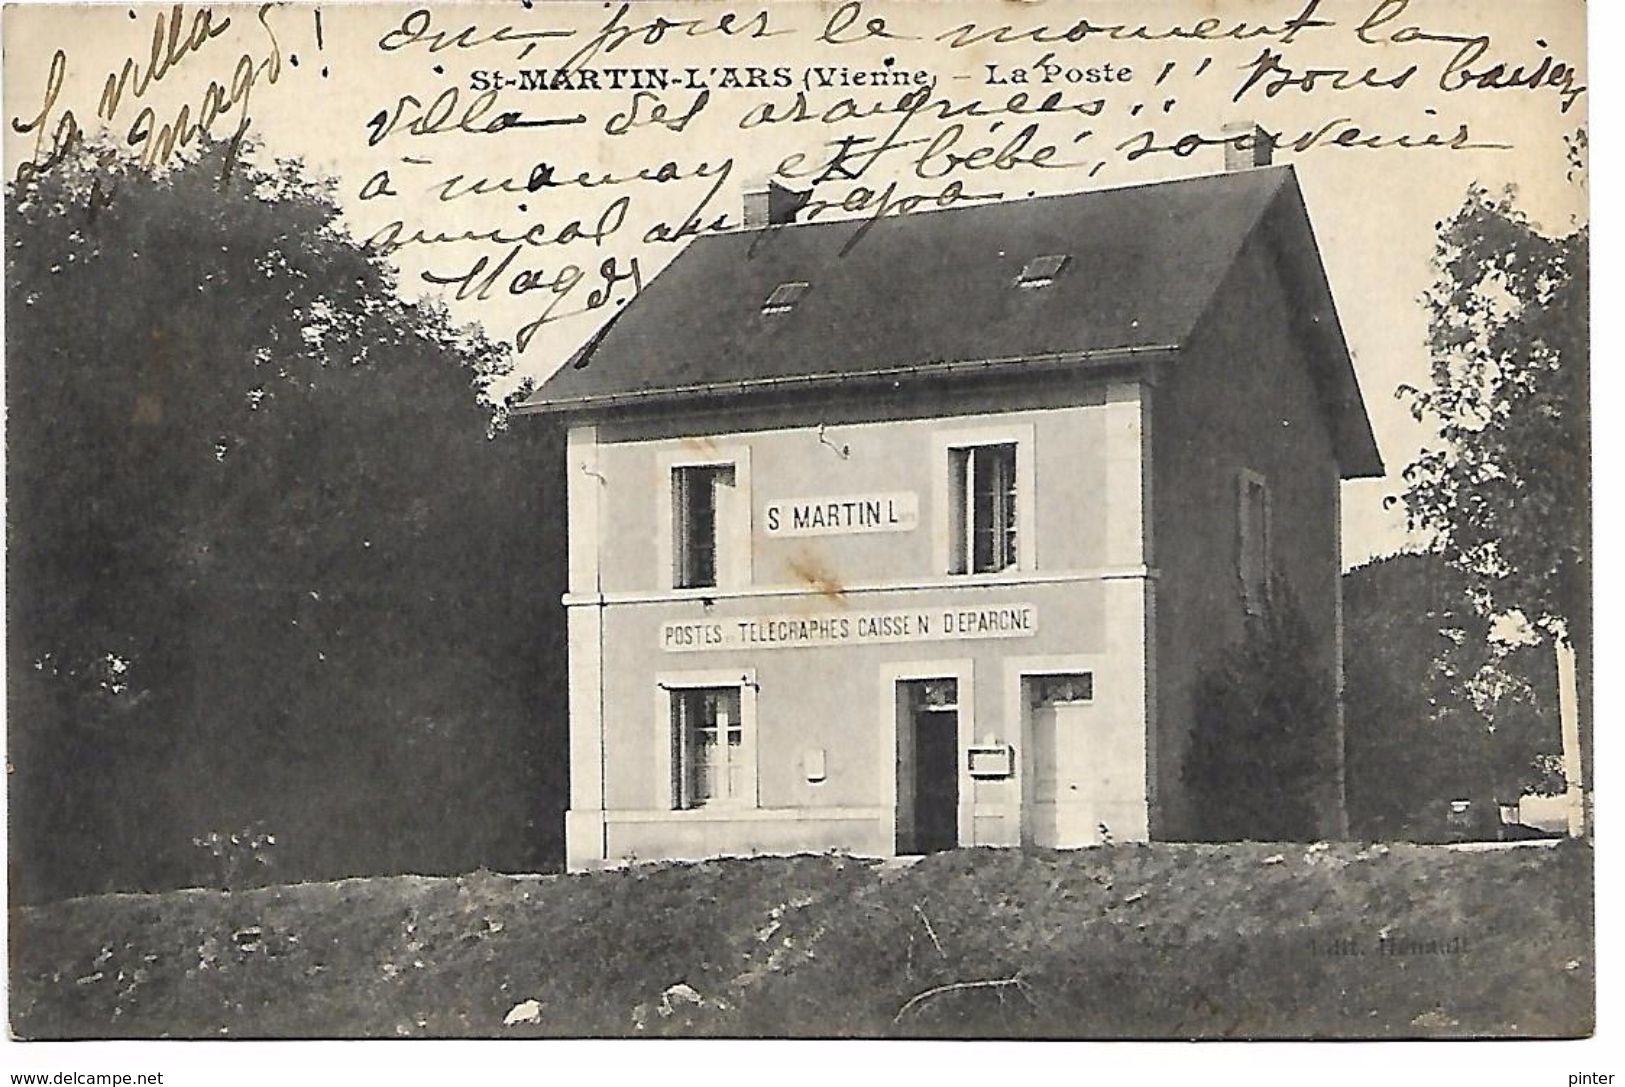 La villa
Magd. !
Oui, pour le moment la
St-MARTIN-L'ARS (Vienne) – La Poste
villa des araignées !! Bons baisers
à maman et bébé, souvenir
amical au papa.
Magd.
St MARTIN L'ARS
POSTES ET TELEGRAPHES CAISSE Nle D'EPARGNE
Edit. Hénault
www.delcampe.net
pinter